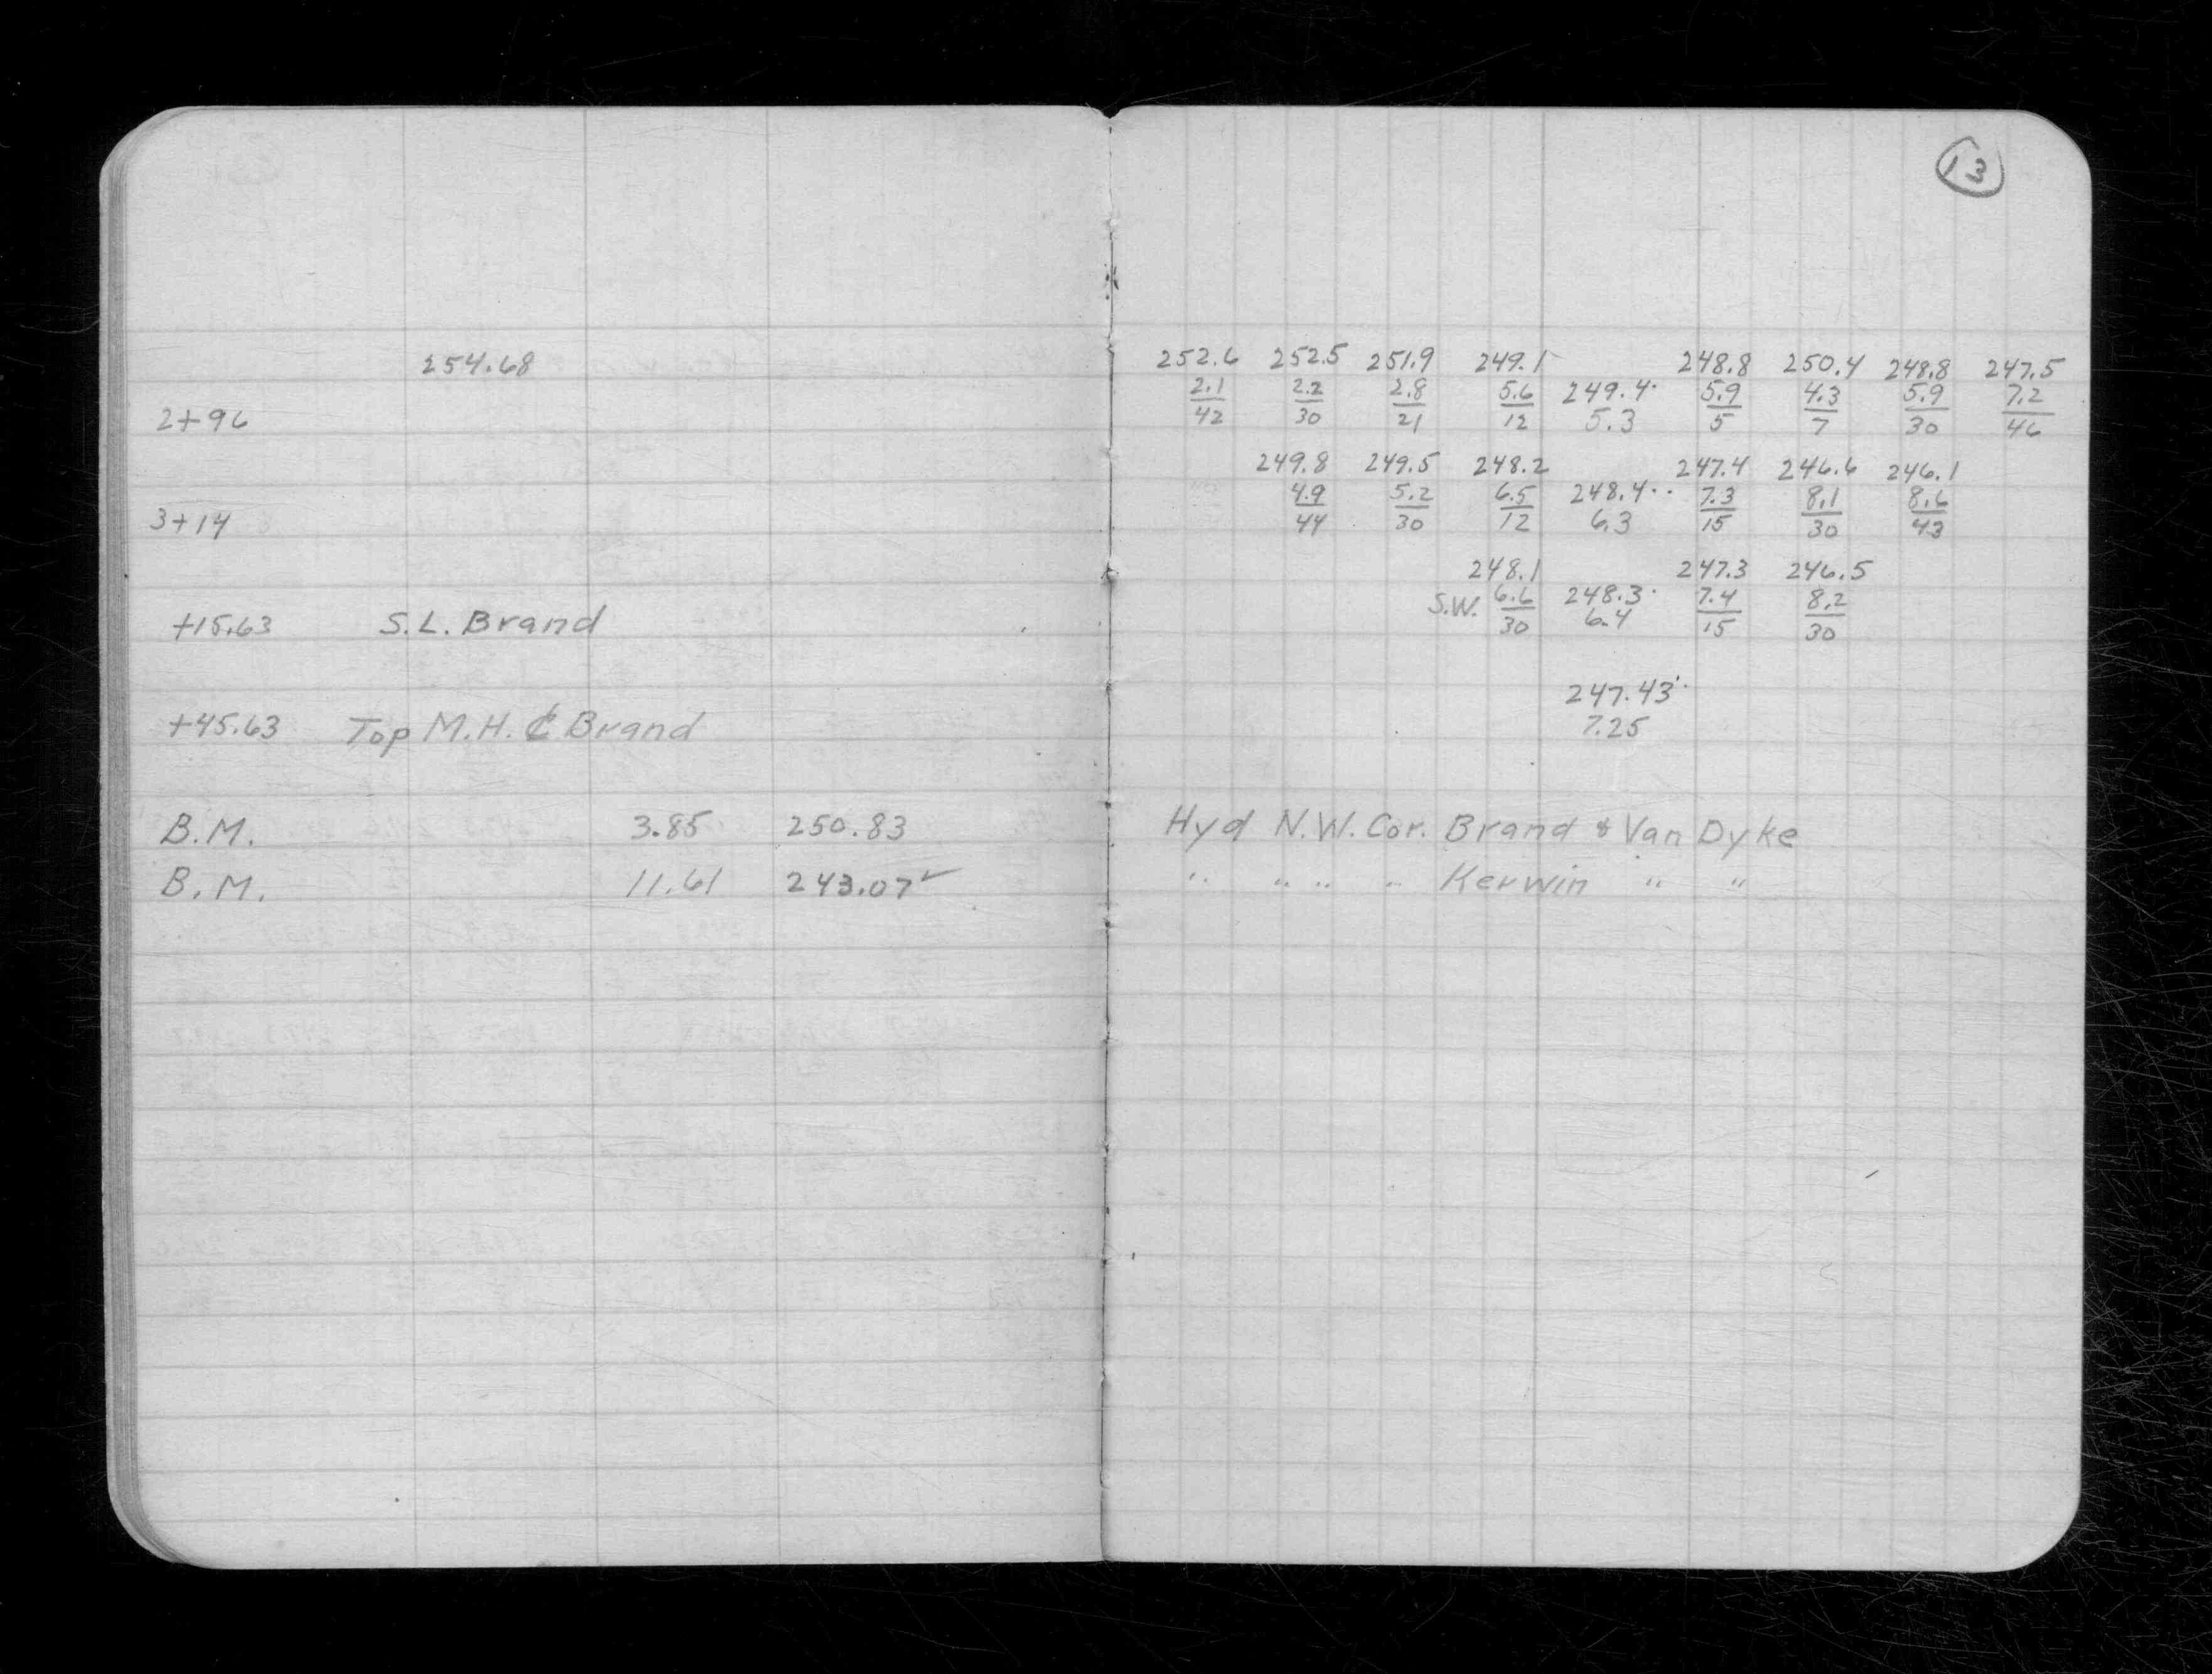 13
254.68
252.6 252.5 251.9 249.1 248.8 250.4 248.8 247.5
2.1 2.2 2.8 5.6 249.4 5.9 4.3 5.9 7.2
2+96 42 30 21 12 5.3 5 7 30 46
249.8 249.5 248.2 247.4 246.6 246.1
4.9 5.2 6.5 248.4 7.3 8.1 8.6
3+14 44 30 12 6.3 15 30 43
248.1 247.3 246.5
S.W. 6.6 248.3 7.4 8.2
+15.63 S.L. Brand 30 6.4 15 30
247.43
+45.63 Top M.H. ₵ Brand 7.25
B.M. 3.85 250.83 Hyd N.W. Cor. Brand & Van Dyke
B.M. 11.61 243.07✓ " " " " Kerwin " "